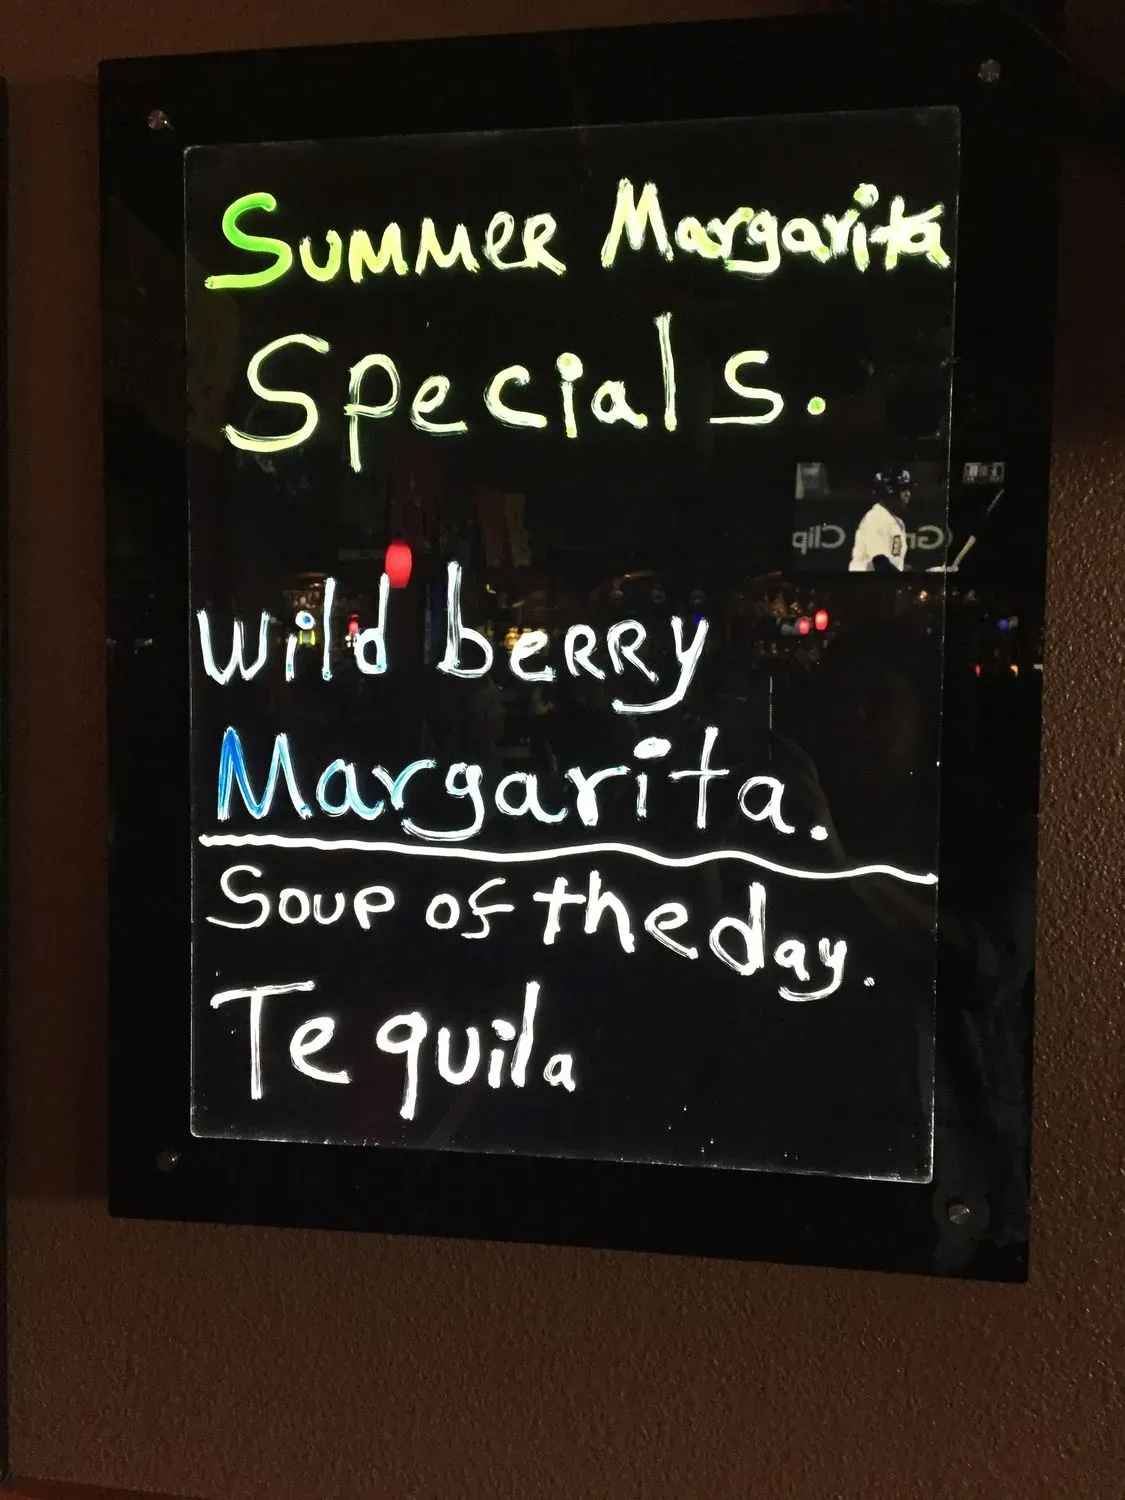 Summer Margarita
Specials.
Wild berry
Margarita.
Soup of the day.
Tequila